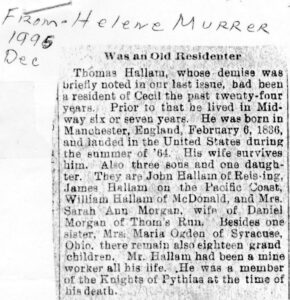 From - Helene Murrer
1995
Dec
Was an Old Residenter
Thomas Hallam, whose demise was
briefly noted in our last issue, had been
a resident of Cecil the past twenty-four
years. Prior to that he lived in Mid-
way six or seven years. He was born in
Manchester, England, February 6, 1836,
and landed in the United States during
the summer of '64. His wife survives
him. Also three sons and one daugh-
ter. They are John Hallam of Reis-ing,
James Hallam on the Pacific Coast,
William Hallam of McDonald, and Mrs.
Sarah Ann Morgan, wife of Daniel
Morgan of Thom's Run. Besides one
sister, Mrs. Maria Orden of Syracuse,
Ohio, there remain also eighteen grand
children. Mr. Hallam had been a mine
worker all his life. He was a member
of the Knights of Pythias at the time of
his death.